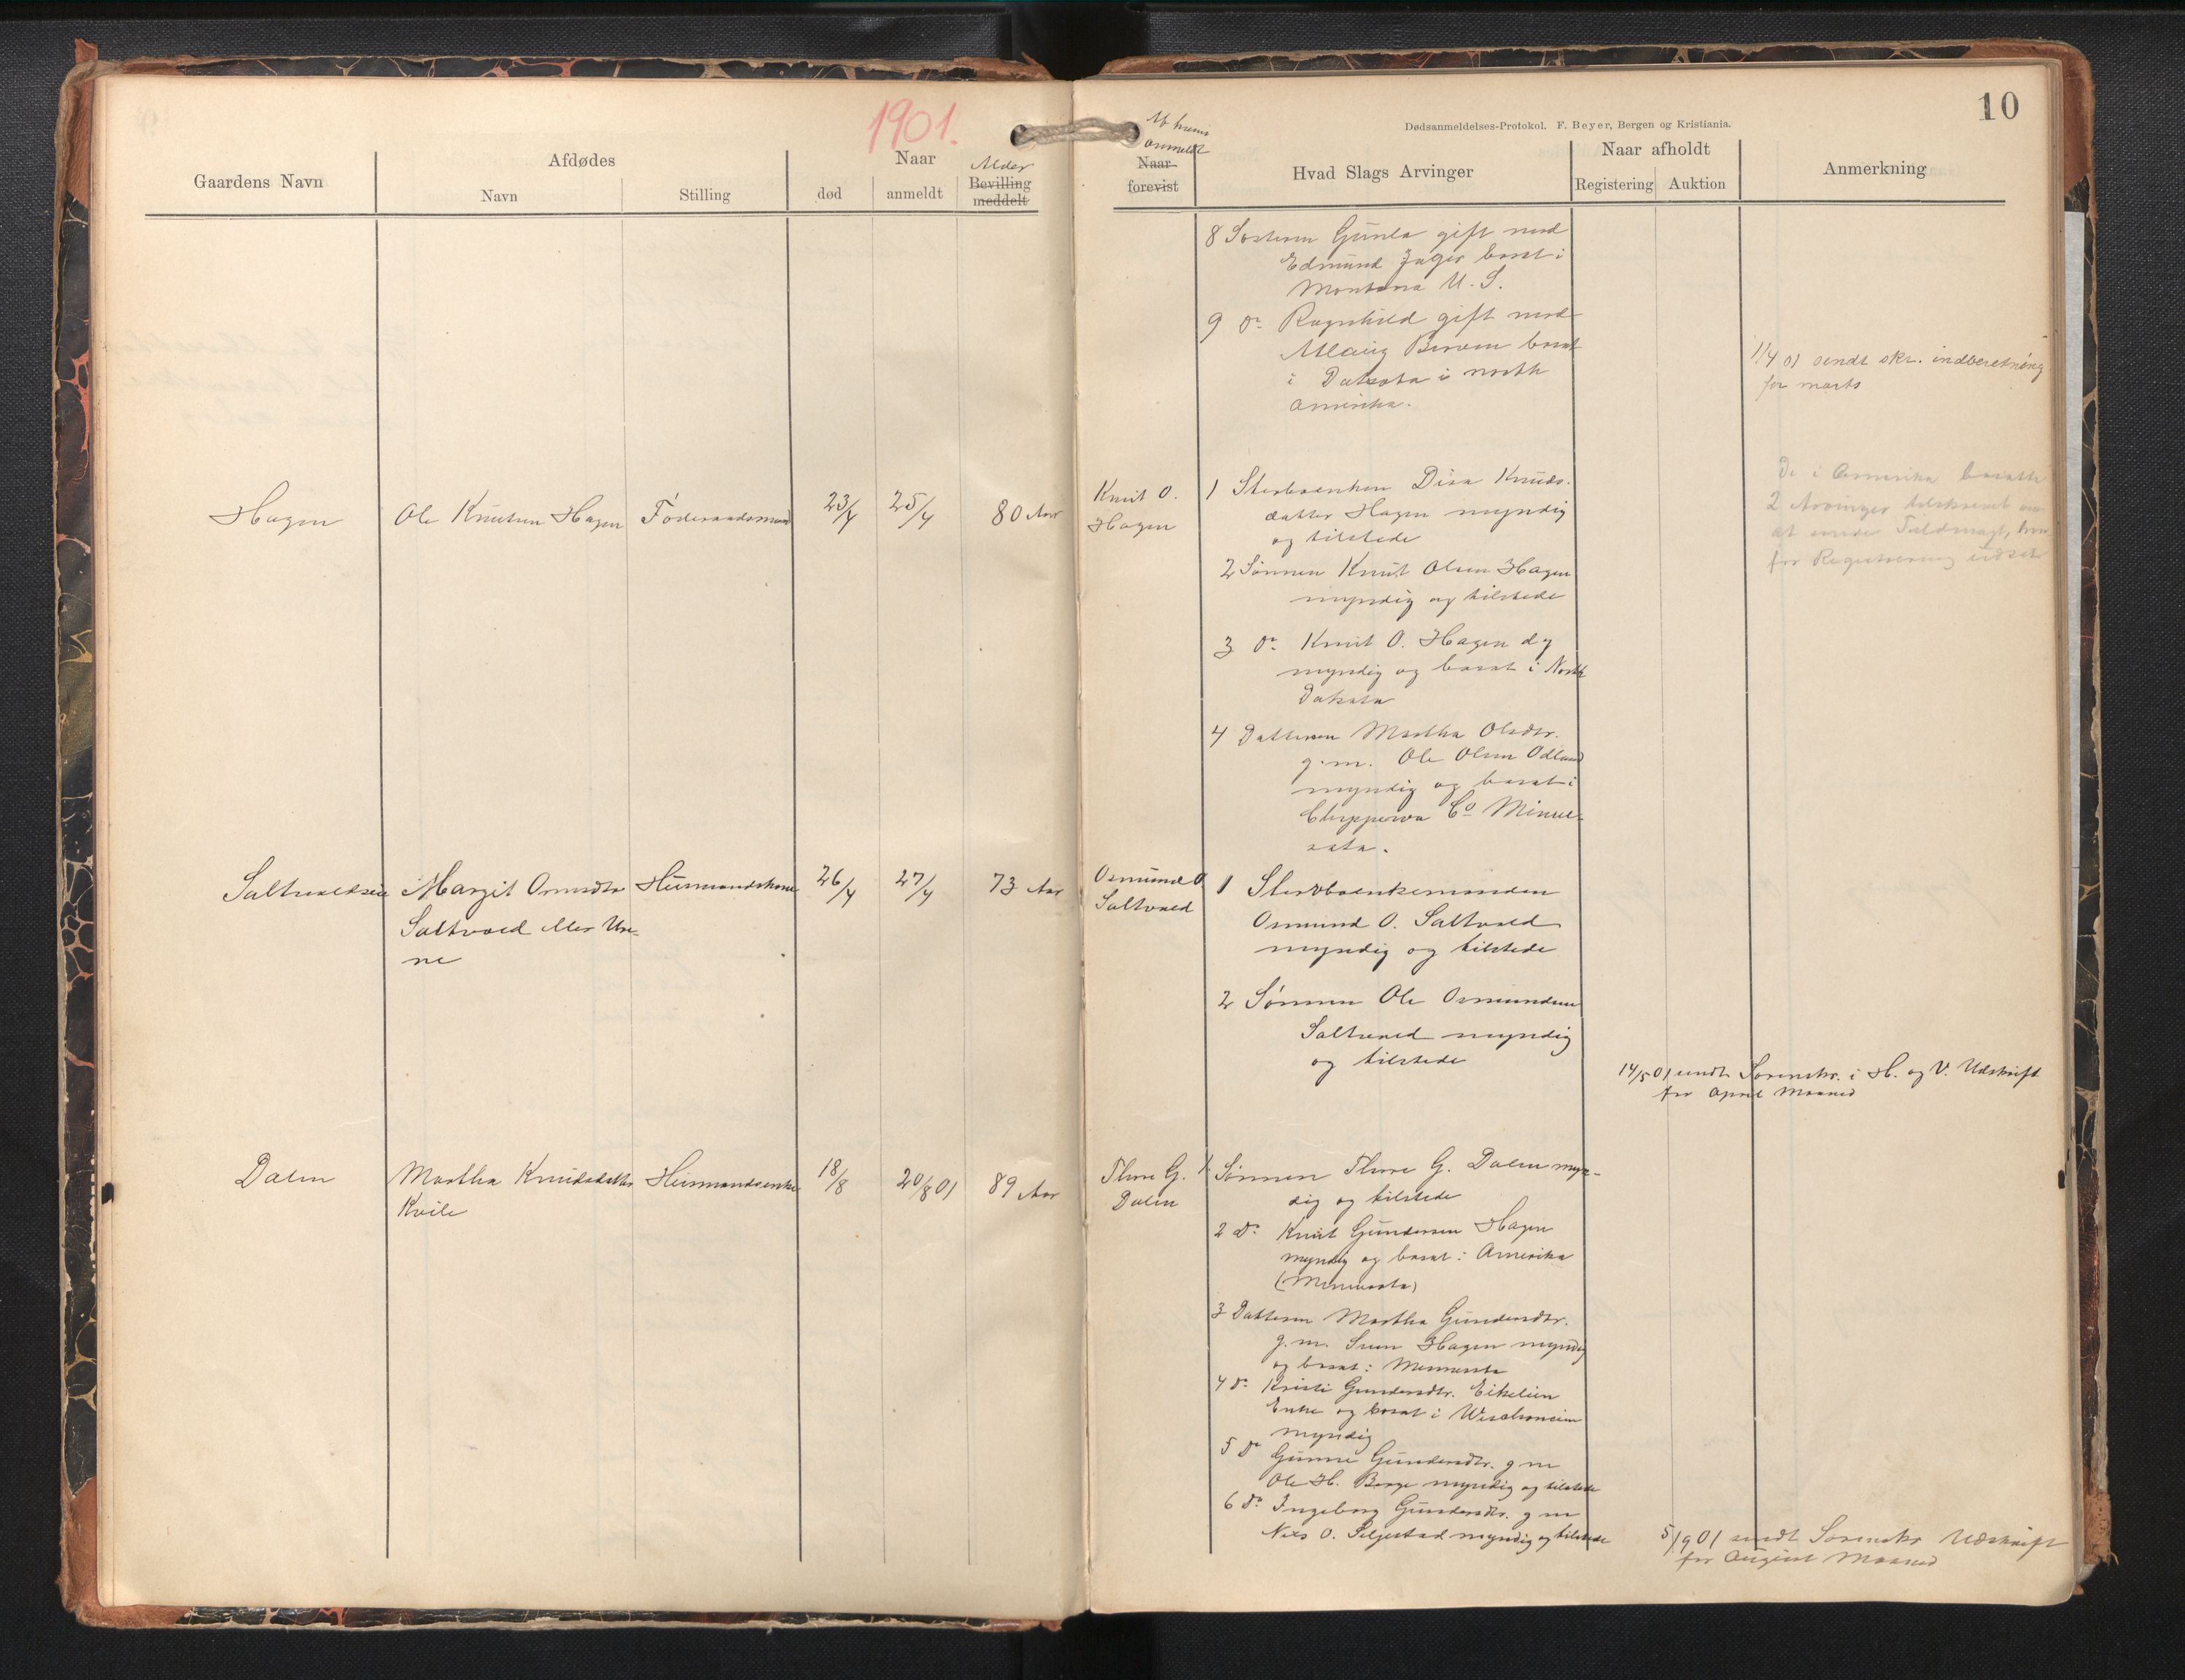 1901.
10
Dødsanmeldelses-Protokol. F. Beyer, Bergen og Kristiania.
Gaardens Navn
Afdødes
Navn
Stilling
Naar
død
anmeldt
Alder
Bevilling meddelt
Af hvem anmeldt
Naar forevist
Hvad Slags Arvinger
Naar afholdt
Registering
Auktion
Anmerkning
8 Søsteren Gunla gift med
Edmund Jager bosat i
Montana U. S.
9 Do Ragnhild gift med
bosat
i Dakota i North
Amerika.
1/4 01 sendt skr. indberetning
for marts
Hagen
Ole Knutsen Hagen
Føderaadsmand
23/4
25/4
80 Aar
Knut O.
Hagen
1 Sterboenken Disa Knuds-
datter Hagen myndig
og tilstede
2 Sønnen Knut Olsen Hagen
myndig og tilstede
3 Do Knut O. Hagen d y
myndig og bosat i North
Dakota
4 Datteren Martha Olsdtr.
g. m. Ole Olsen Odland
myndig og bosat i
Chippewa Co Minne-
sota.
De i Amerika bosatte
2 Arvinger tilskrevet om
at sende Fuldmagt, hvor-
for Registrering udsat
Saltvoldseie
Margit Osmdtr
Saltvold eller Une-
ne
Husmandskone
26/4
27/4
73 Aar
Osmund O
Saltvold
1 Stervboenkemanden
Osmund O. Saltvold
myndig og tilstede
2 Sønnen Ole Osmundsen
Saltvold myndig
og tilstede
14/5 01 sendt Sorenskr. i H. og V. Udskrift
for April Maaned
Dalen
Martha Knudsdatter
Kvile
Husmandsenke
18/8
20/8 01
89 Aar
Thore G.
Dalen
1 Sønnen Thore G. Dalen myn-
dig og tilstede
2 Do Knut Gundersen Hagen
myndig og bosat i Amerika
(Minnesota)
3 Datteren Martha Gundersdtr.
g. m. Sven Hagen myndig
og bosat i Minnesota
4 Do Kristi Gundersdtr. Eikelien
Enke og bosat i Wischonsin
myndig
5 Do Gunne Gundersdtr. g m
Ole H. Borge myndig og tilstede
6 Do Ingeborg Gundersdtr. g m
Nils O. Seljestad myndig og tilstede
5/9 01 sendt Sorenskr Udskrift
for August Maaned